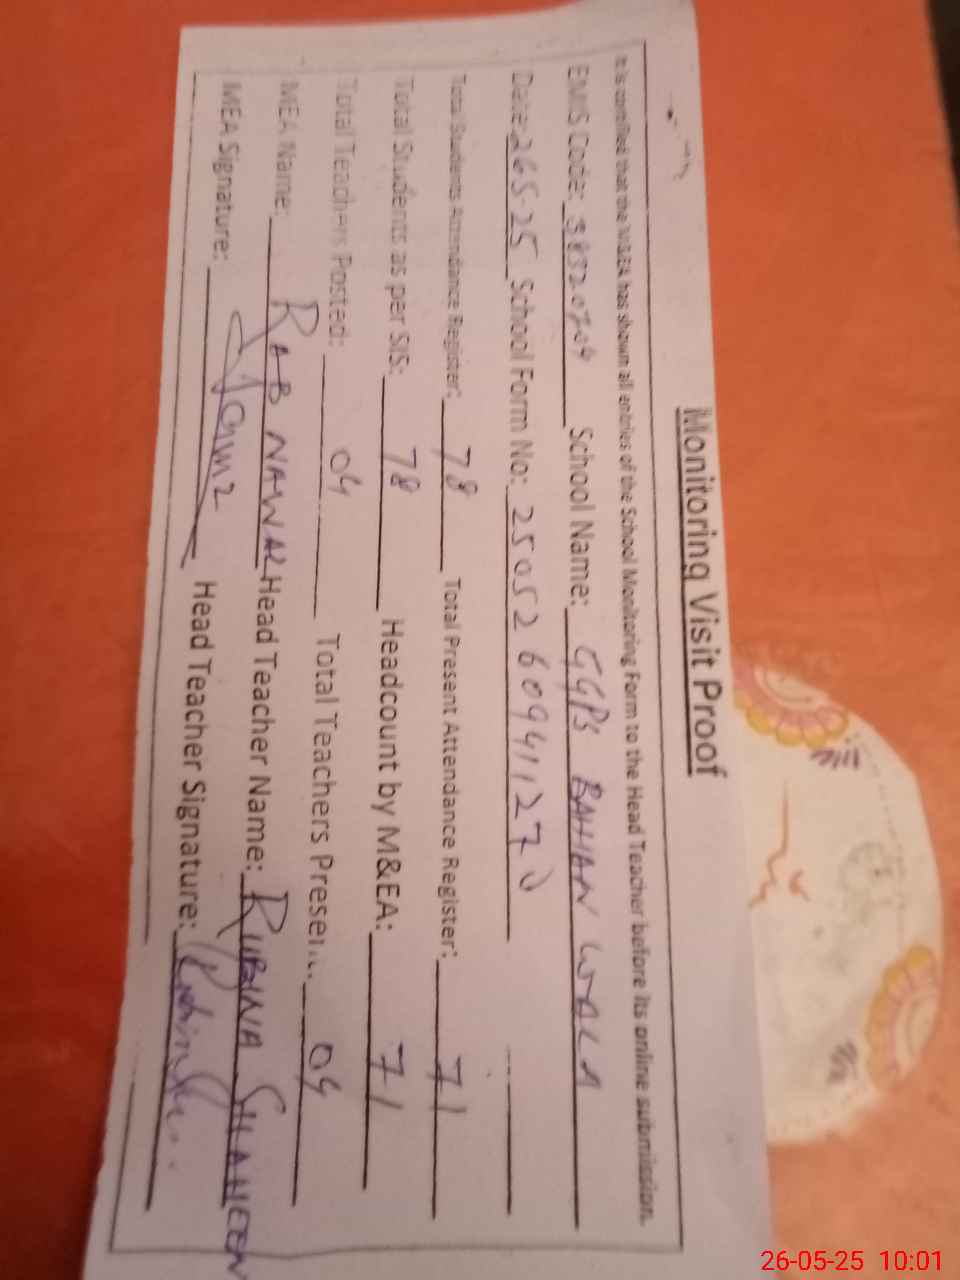 Monitoring Visit Proof
It is certified that the M&EA has shown all entries of the School Monitoring Form to the Head Teacher before its online submission.
EMIS Code: 38320704 School Name: GGPS BAHAN WALA
Date: 26.5.25 School Form No: 25052609411270
Total Students Attendance Register: 78 Total Present Attendance Register: 71
Total Students as per SIS: 78 Headcount by M&EA: 71
Total Teachers Posted: 04 Total Teachers Present: 04
MEA Name: RAB NAWAZ Head Teacher Name: RUBINA SHAHEEN
MEA Signature: Head Teacher Signature:
26-05-25 10:01